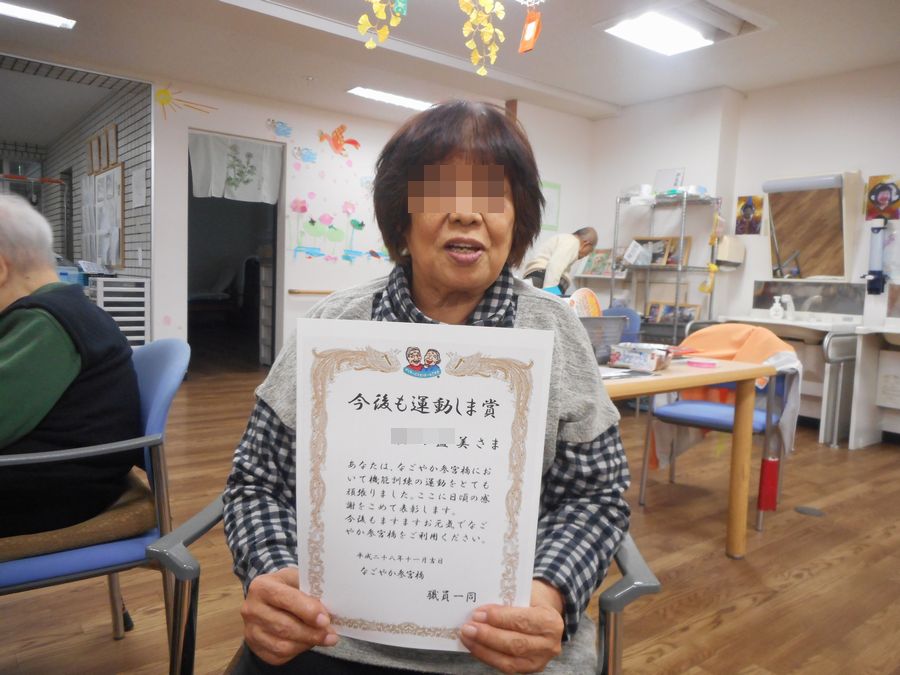 今後も運動しま賞
美さま
あなたは、なごやか参宮橋にお
いて機能訓練の運動をとても
頑張りました。ここに日頃の感
謝をこめて表彰します。
今後もますますお元気でなご
やか参宮橋をご利用ください。
平成二十八年十一月吉日
なごやか参宮橋
職員一同